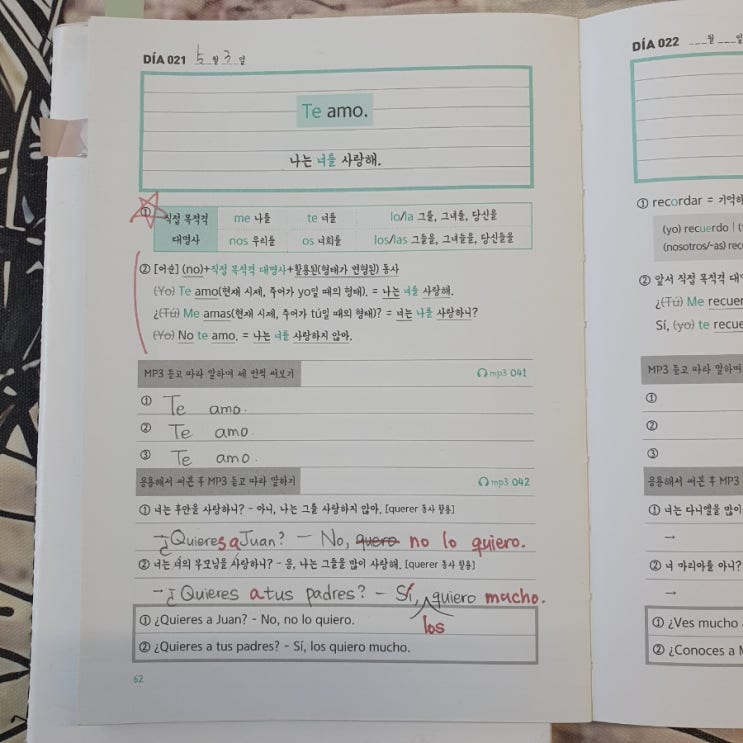 DÍA 021 5월 3일
Te amo.
나는 너를 사랑해.
① 직접 목적격 대명사
me 나를 te 너를 lo/la 그를, 그녀를, 당신을
nos 우리를 os 너희를 los/las 그들을, 그녀들을, 당신들을
② [어순] (no)+직접 목적격 대명사+활용된(형태가 변형된) 동사
(Yo) Te amo(현재 시제, 주어가 yo일 때의 형태). = 나는 너를 사랑해.
¿(Tú) Me amas(현재 시제, 주어가 tú일 때의 형태)? = 너는 나를 사랑하니?
(Yo) No te amo. = 나는 너를 사랑하지 않아.
MP3 듣고 따라 말하며 세 번씩 써보기 mp3 041
① Te amo.
② Te amo.
③ Te amo.
응용해서 써본 후 MP3 듣고 따라 말하기 mp3 042
① 너는 후안을 사랑하니? - 아니, 나는 그를 사랑하지 않아. [querer 동사 활용]
→ ¿Quieres a Juan? - No, quero no lo quiero.
② 너는 너의 부모님을 사랑하니? - 응, 나는 그들을 많이 사랑해. [querer 동사 활용]
→ ¿Quieres a tus padres? - Sí, quiero mucho.
los
① ¿Quieres a Juan? - No, no lo quiero.
② ¿Quieres a tus padres? - Sí, los quiero mucho.
62
DÍA 022 월 일
① recordar = 기억하
(yo) recuerdo | (
(nosotros/-as) rec
② 앞서 직접 목적격 대
¿(Tú) Me recuer
Sí, (yo) te recue
MP3 듣고 따라 말하며
①
②
③
응용해서 써본 후 MP3
① 너는 다니엘을 많이
→
② 너 마리아를 아니?
→
① ¿Ves mucho a
② ¿Conoces a M